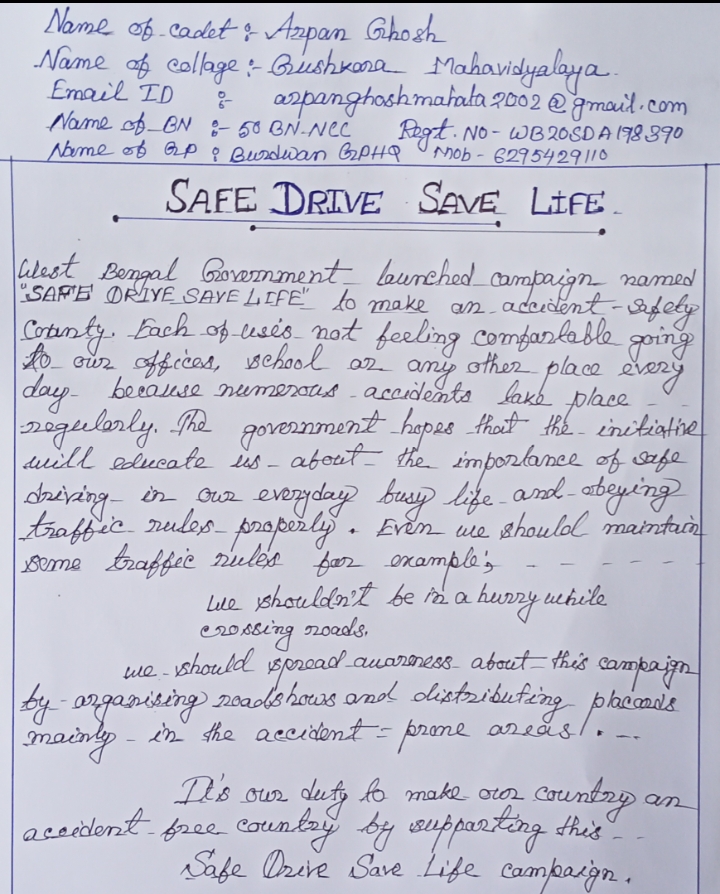 Name of cadet :- Arpan Ghosh
Name of collage :- Gushkara Mahavidyalaya.
Email ID :- arpanghoshmahata2002@gmail.com
Name of BN :- 50 BN-NCC Regt. NO - WB20SDA198390
Name of GP : Burdwan GPHQ Mob - 6295429110
SAFE DRIVE SAVE LIFE.
West Bengal Government launched campaign named
"SAFE DRIVE SAVE LIFE" to make an accident-safety
County. Each of us is not feeling comfartable going
to our offices, school or any other place every
day because numerous accidents take place
regularly. The government hopes that the initiative
will educate us about the importance of safe
driving in our everyday busy life and obeying
traffic rules properly. Even we should maintain
some traffic rules for example; - - - - - -
we shouldn't be in a hurry while
crossing roads.
we should spread awarness about this campaign
by organising roadshows and distributing placards
mainly in the accident-prone areas.
It's our duty to make our country an
accident free country by supporting this
Safe Drive Save Life campaign.